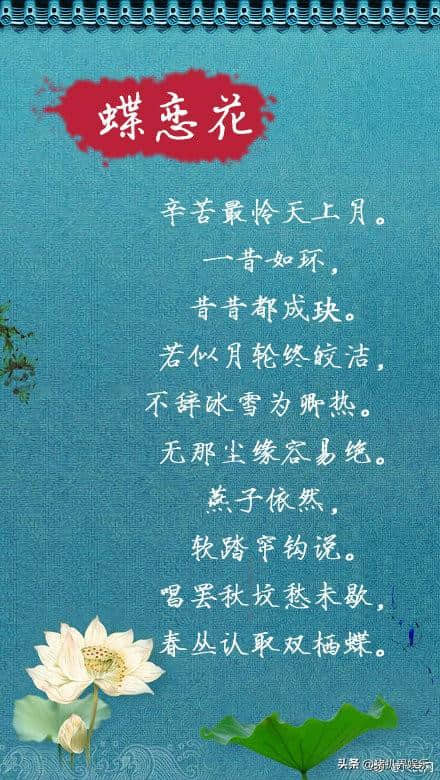 蝶恋花
辛苦最怜天上月。
一昔如环，
昔昔都成玦。
若似月轮终皎洁，
不辞冰雪为卿热。
无那尘缘容易绝。
燕子依然，
软踏帘钩说。
唱罢秋坟愁未歇，
春丛认取双栖蝶。
头条